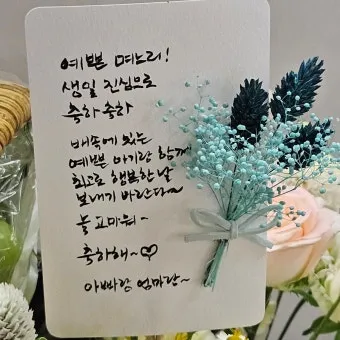 예쁜 며느리!
생일 진심으로
축하 축하
뱃속에 있는
예쁜 아기랑 함께
최고로 행복한 날
보내기 바란다~
늘 고마워~
축하해~♡
아빠랑 엄마란~